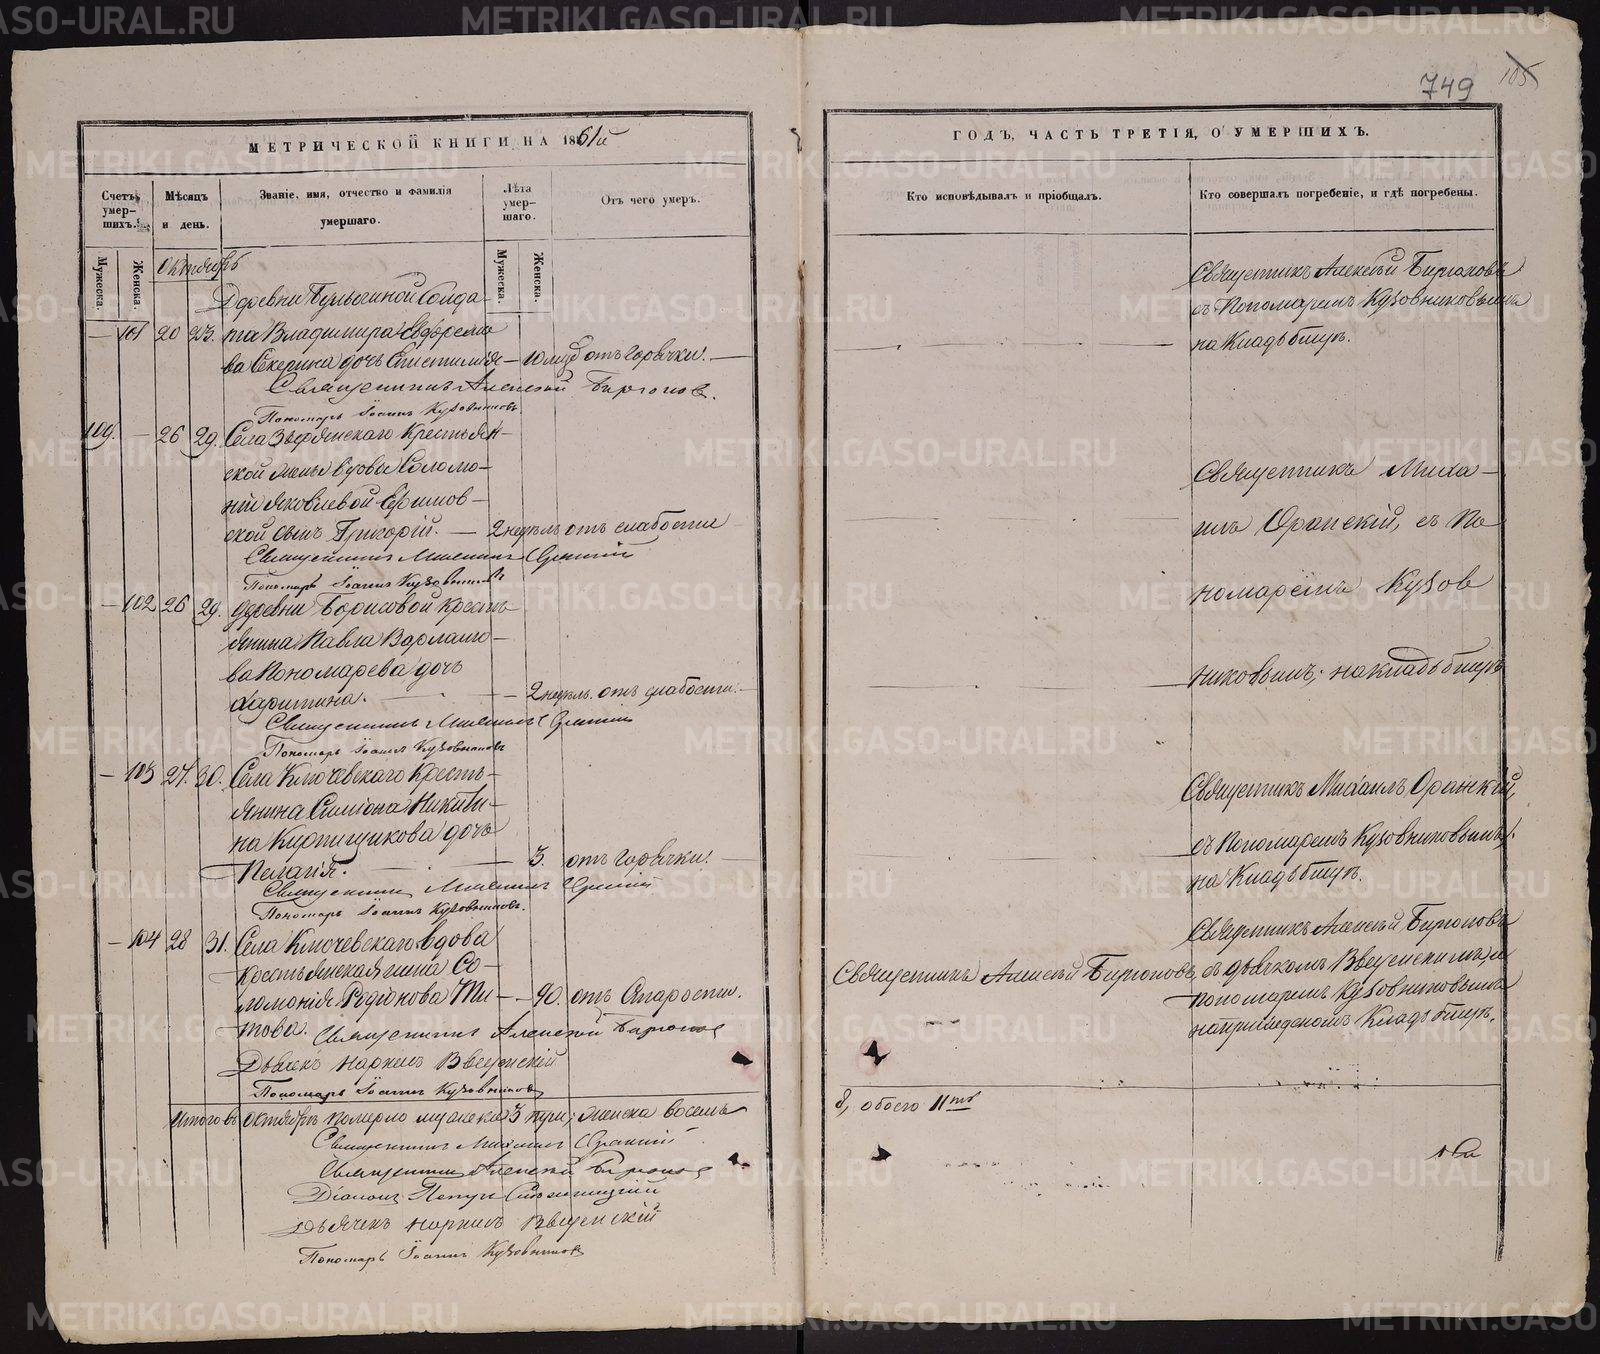 749 105
МЕТРИЧЕСКОЙ КНИГИ НА 1861й
ГОДЪ, ЧАСТЬ ТРЕТІЯ, О УМЕРШИХЪ.
Счетъ умер-
шихъ.
Мѣсяцъ
и день.
Званіе, имя, отчество и фамилія
умершаго.
Лѣта
умер-
шаго.
Отъ чего умеръ.
Кто исповѣдывалъ и пріобщалъ.
Кто совершалъ погребеніе, и гдѣ погребены.
Мужеска.
Женска.
Мужеска.
Женска.
Октябрь
Деревни Булыгиной Солда-
— 101 20 23. та Владимира
ва Секерина дочь — 10 мѣс. отъ горячки. —
Священникъ Алексѣй Бирюковъ.
Пономарь Іоаннъ Кузовниковъ.
Священникъ Алексѣй Бирюковъ
съ Пономаремъ Кузовниковымъ
на Кладбищѣ.
109. — 26 29. Села Крестьян-
ской вдовы Соломо-
ніи Яковлевой Ефимов-
ской сынъ Григорій. — 2 недѣль отъ слабости
Священникъ Михаилъ Оранскій
Пономарь Іоаннъ Кузовниковъ
Священникъ Миха-
илъ Оранскій, съ По
номаремъ Кузов
никовымъ; на кладбищѣ
— 102 26 29. Деревни Борисовой Кресть-
янина Павла Варламо-
ва Пономарева дочь
Харитина. — 2 недѣль. отъ слабости. —
Священникъ Михаилъ Оранскій
Пономарь Іоаннъ Кузовниковъ
— 103 27. 30. Села Ключевскаго Кресть-
янина Симіона Никити-
на Кирпищикова дочь
Пелагія. — 3. отъ горячки. —
Священникъ Михаилъ Оранскій
Пономарь Іоаннъ Кузовниковъ.
Священникъ Михаилъ Оранскій,
съ Пономаремъ Кузовниковымъ.
на Кладбищѣ.
— 104 28 31. Села Ключевскаго вдова
крестьянская жена Со-
ломонія Родіонова Ти- — 90. отъ Старости.
това. Священникъ Алексѣй Бирюковъ
Дьячекъ Введенскій
Пономарь Іоаннъ Кузовниковъ
Священникъ Алексѣй Бирюковъ
Священникъ Алексѣй Бирюковъ, съ дьячкомъ Введенскимъ, и
пономаремъ Кузовниковымъ
на приходскомъ Кладбищѣ.
Итого въ Октябрѣ померло мужеска 3 три, женска восемь
8, обоего 11ть
Священникъ Михаилъ Оранскій
Священникъ Алексѣй Бирюковъ
Діаконъ Петръ
Дьячекъ Введенскій
Пономарь Іоаннъ Кузовниковъ
METRIKI.GASO-URAL.RU